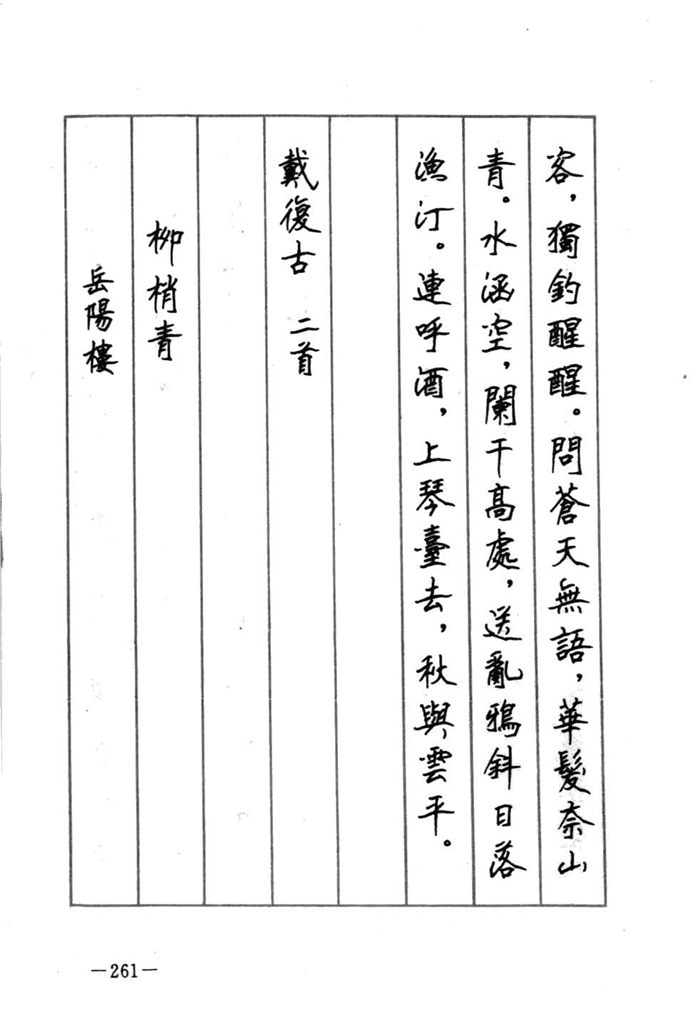 客，獨釣醒醒。問蒼天無語，華髮奈山
青。水涵空，闌干高處，送亂鴉斜日落
漁汀。連呼酒，上琴臺去，秋與雲平。
戴復古　二首
柳梢青
岳陽樓
—261—